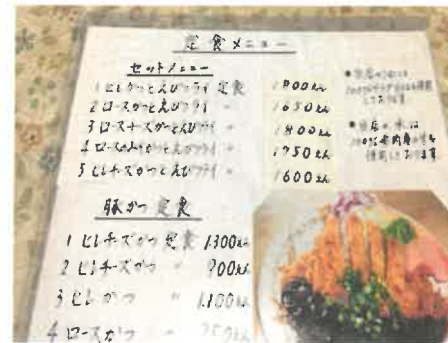 定食メニュー
セットメニュー
1 ヒレかつとえびフライ 定食 1800えん
2 ロースかつとえびフライ 〃 1650えん
3 ロースチーズかつとえびフライ 〃 1800えん
4 ロースみそかつとえびフライ 〃 1750えん
5 ヒレチーズかつとえびフライ 〃 1600えん
豚かつ定食
1 ヒレチーズかつ 定食 1300えん
2 ヒレチーズかつ 〃 900えん
3 ヒレかつ 〃 1,100えん
4 ロースかつ 〃
●当店の
●当店の
100%
使用しております